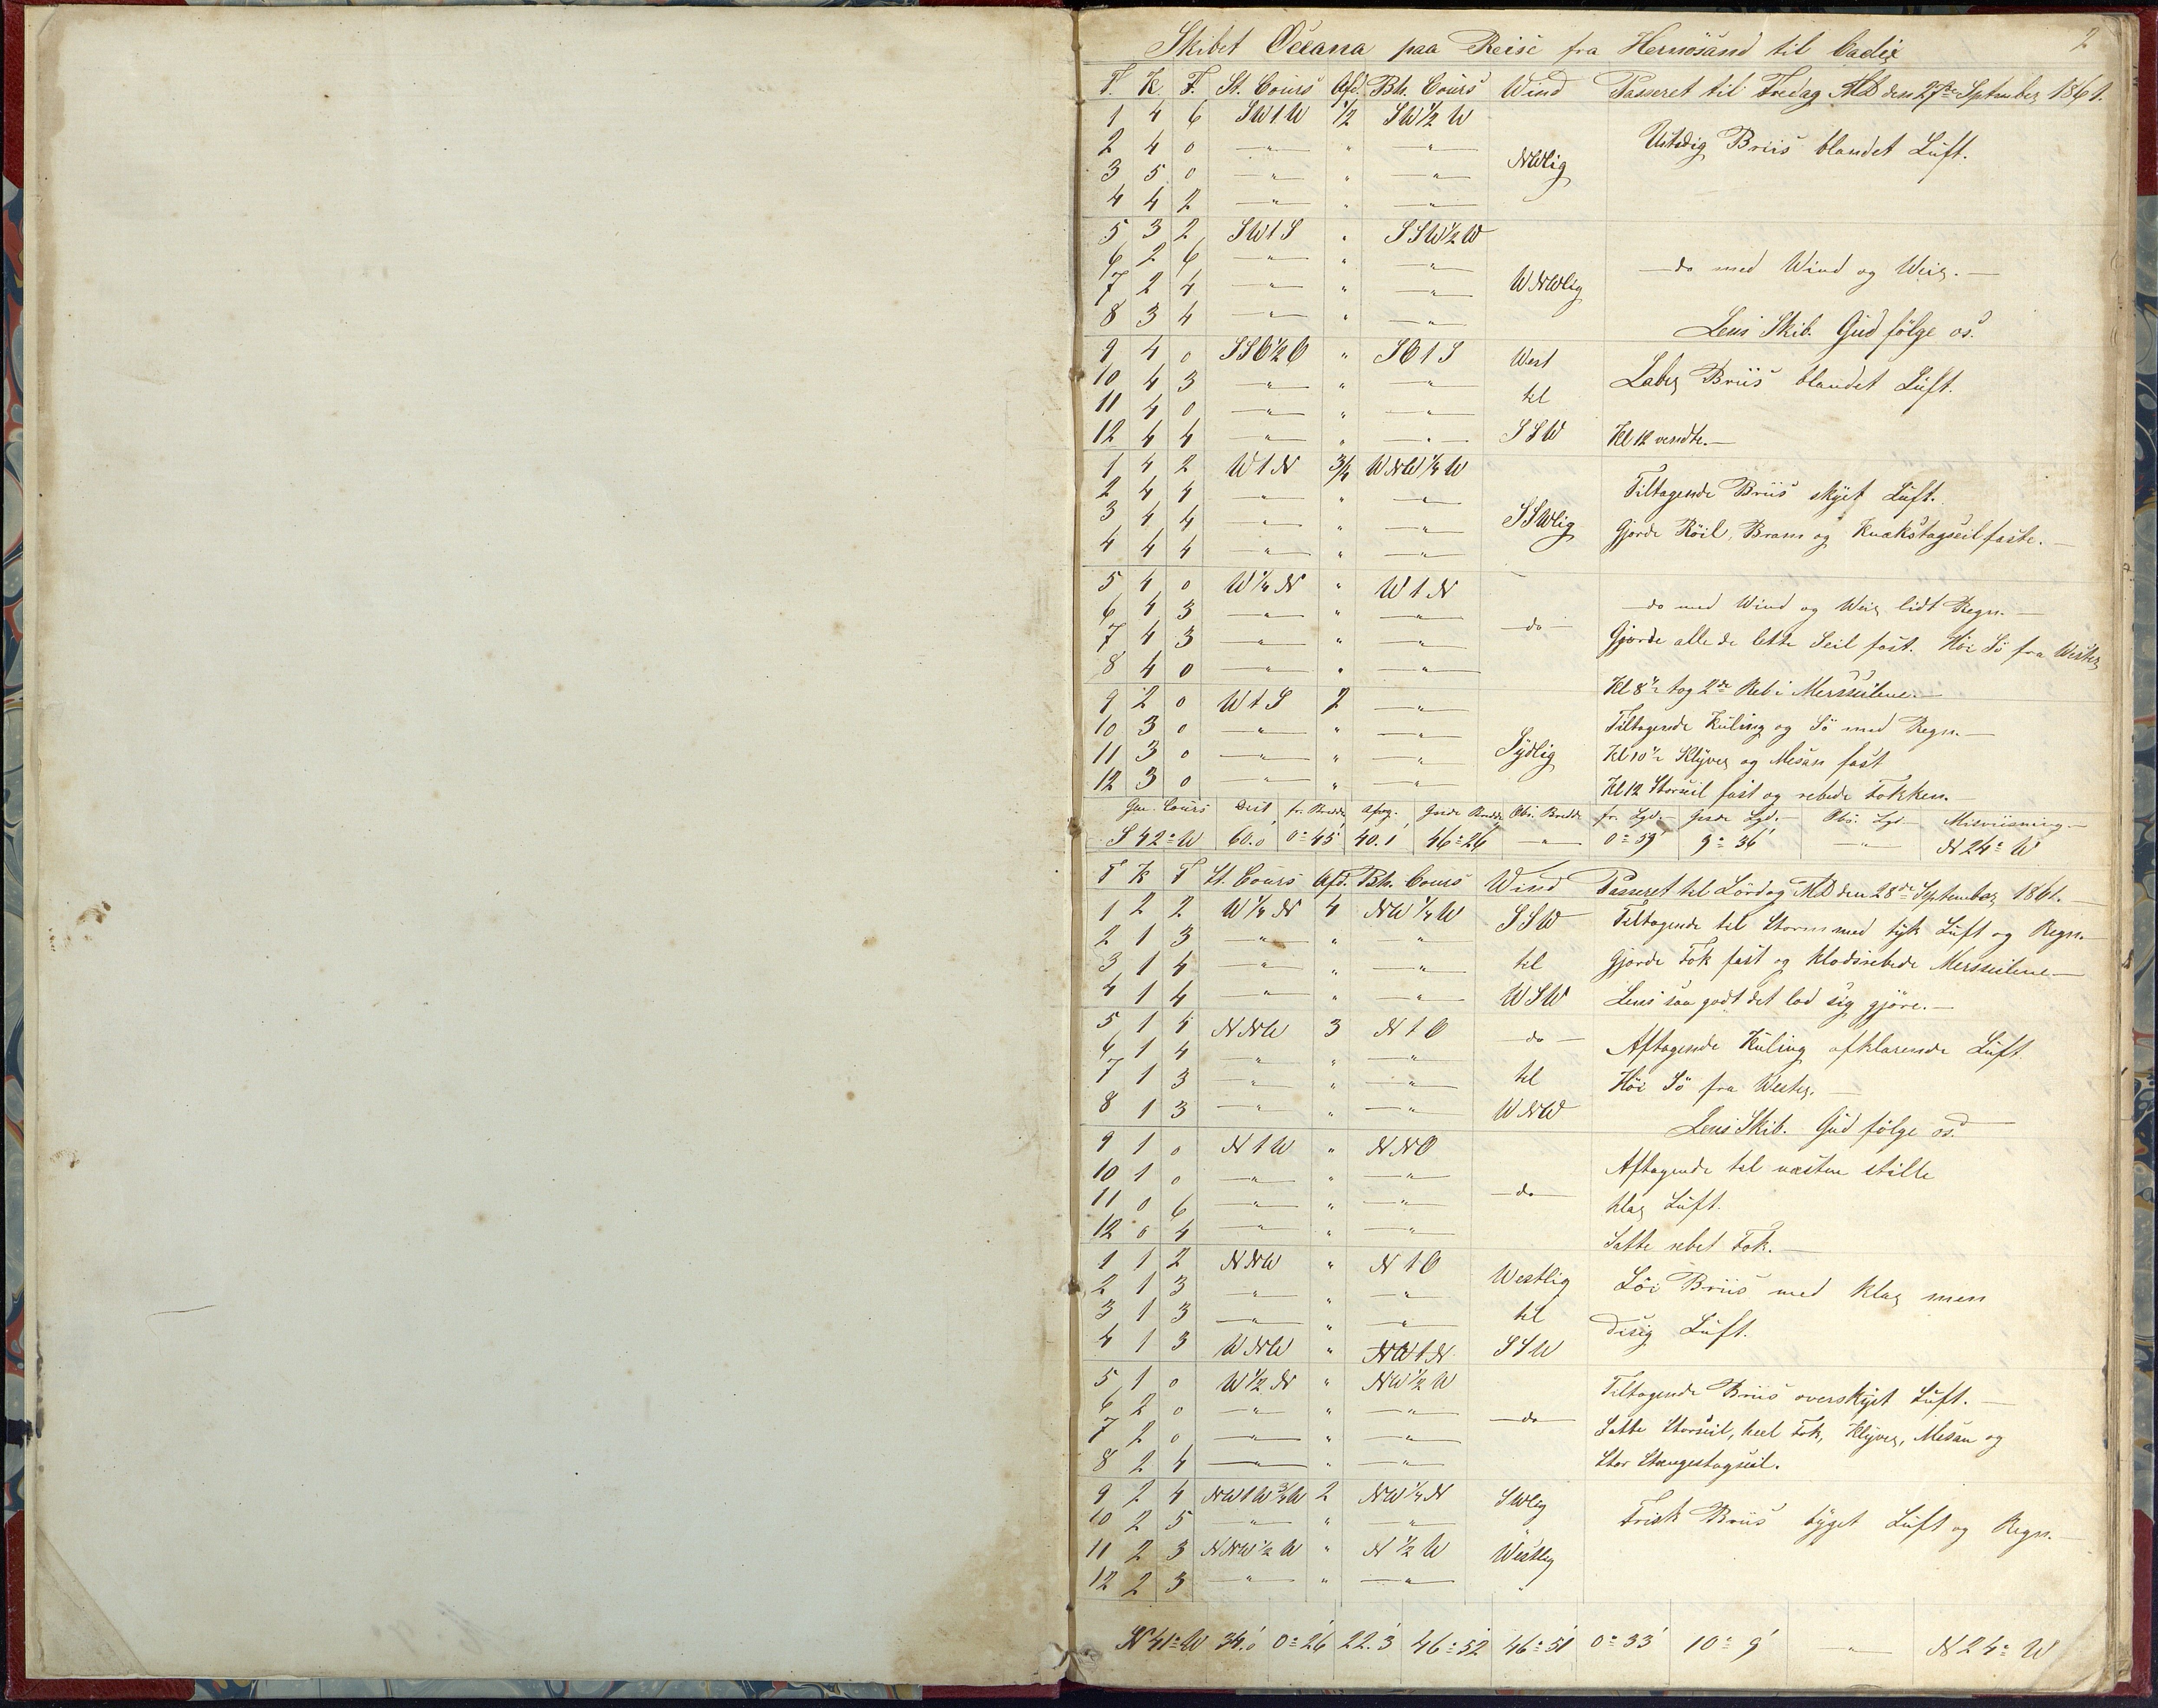 2
Skibet Oceana paa Reise fra Hernösand til Cadix
T. K. F. St. Cours Afd. Bh. Cours Wind Passeret til Fredag MD den 27de September 1861.
1 4 6 SW1W 1/2 SW1/2W
2 4 0 —"— " —"— NWlig Ustadig Briis blandet Luft.
3 5 0 —"— " —"—
4 4 2 —"— " —"—
5 3 2 SW1S " SSW1/2W
6 2 6 —"— " —"— —do med Wind og Veir.—
7 2 4 —"— " —"— WNWlig
8 3 4 —"— " —"— Lens Skib. Gud fölge os.
9 4 0 SSO1/2O " SO1S West
10 4 3 —"— " —"— til Laber Briis blandet Luft.
11 4 0 —"— " —"—
12 4 4 —"— " —"— SSW Kl 12 vendte.—
1 4 2 W1N 3/4 WNW1/4W
2 4 4 —"— " —"— Tiltagende Briis skyet Luft.
3 4 4 —"— " —"— SSWlig Gjorde Röil, Bram og Knækstagseil faste.—
4 4 4 —"— " —"—
5 4 0 W1/4N " W1N
6 4 3 —"— " —"— —do— —do med Wind og Veir lidt Regn.—
7 4 3 —"— " —"— Gjorde alle de lette Seil fast. Höi Sö fra Wester
8 4 0 —"— " —"—
9 2 0 W1S 2 —"— Kl 8 1/2 tog 2de Reb i Mersseilene.—
10 3 0 —"— " —"— Sydlig Tiltagende Kuling og Sö med Regn.—
11 3 0 —"— " —"— Kl 10 1/2 Klyver og Mesan fast
12 3 0 —"— " —"— Kl 12 Storseil fast og rebede Fokken.
Gen. Cours Dist. fr. Brede afvg. Gisede Brede Obs. Bredde fr. Lgd.— Gisede Lgd.— Obs. Lgd.— Misviisning—
S 42° W 60.0 0°45' 40.1 46°26' —"— 0°59' 9°36' —"— N 24° W
T K F St. Cours Afd. Bh. Cours Wind Passeret til Lördag MD den 28de September 1861.—
1 2 2 W1/4N 4 NW1/4W SSW Tiltagende til Storm med tyk Luft og Regn.
2 1 3 —"— " —"—
3 1 4 —"— " —"— til Gjorde Fok fast og klodsrebede Mersseilene—
4 1 4 —"— " —"— WSW Lens saa godt det lod sig gjöre.—
5 1 4 NNW 3 N1O —do— Aftagende Kuling afklarende Luft
6 1 4 —"— " —"—
7 1 3 —"— " —"— til Höi Sö fra Wester.—
8 1 3 —"— " —"— WNW Lens Skib. Gud fölge os.
9 1 0 N1W " NNO
10 1 0 —"— " —"— —do— Aftagende til næsten stille
11 0 6 —"— " —"— klar Luft.
12 0 4 —"— " —"— Satte rebet Fok.—
1 1 2 NNW " N1O Westlig
2 1 3 —"— " —"— Löi Briis med klar men
3 1 3 —"— " —"— til disig Luft.
4 1 3 WNW " NW1N SSW
5 1 0 W1/2N " NW1/2W
6 2 0 —"— " —"— —do— Tiltagende Briis overskyet Luft.—
7 2 0 —"— " —"— Satte Storseil, heel Fok, Klyver, Mesan og
8 2 4 —"— " —"— Stor Stængestagseil.
9 2 4 NW1W3/4W 2 NW1/4N SWlig
10 2 5 —"— " —"— Frisk Briis byget Luft og Regn.—
11 2 3 NNW1/2W " N1/2W Westlig
12 2 3 —"— " —"—
N 41° W 34.0 0°26' 22.3 46°52' 46°51' 0°33' 10°9' —"— N 24° W